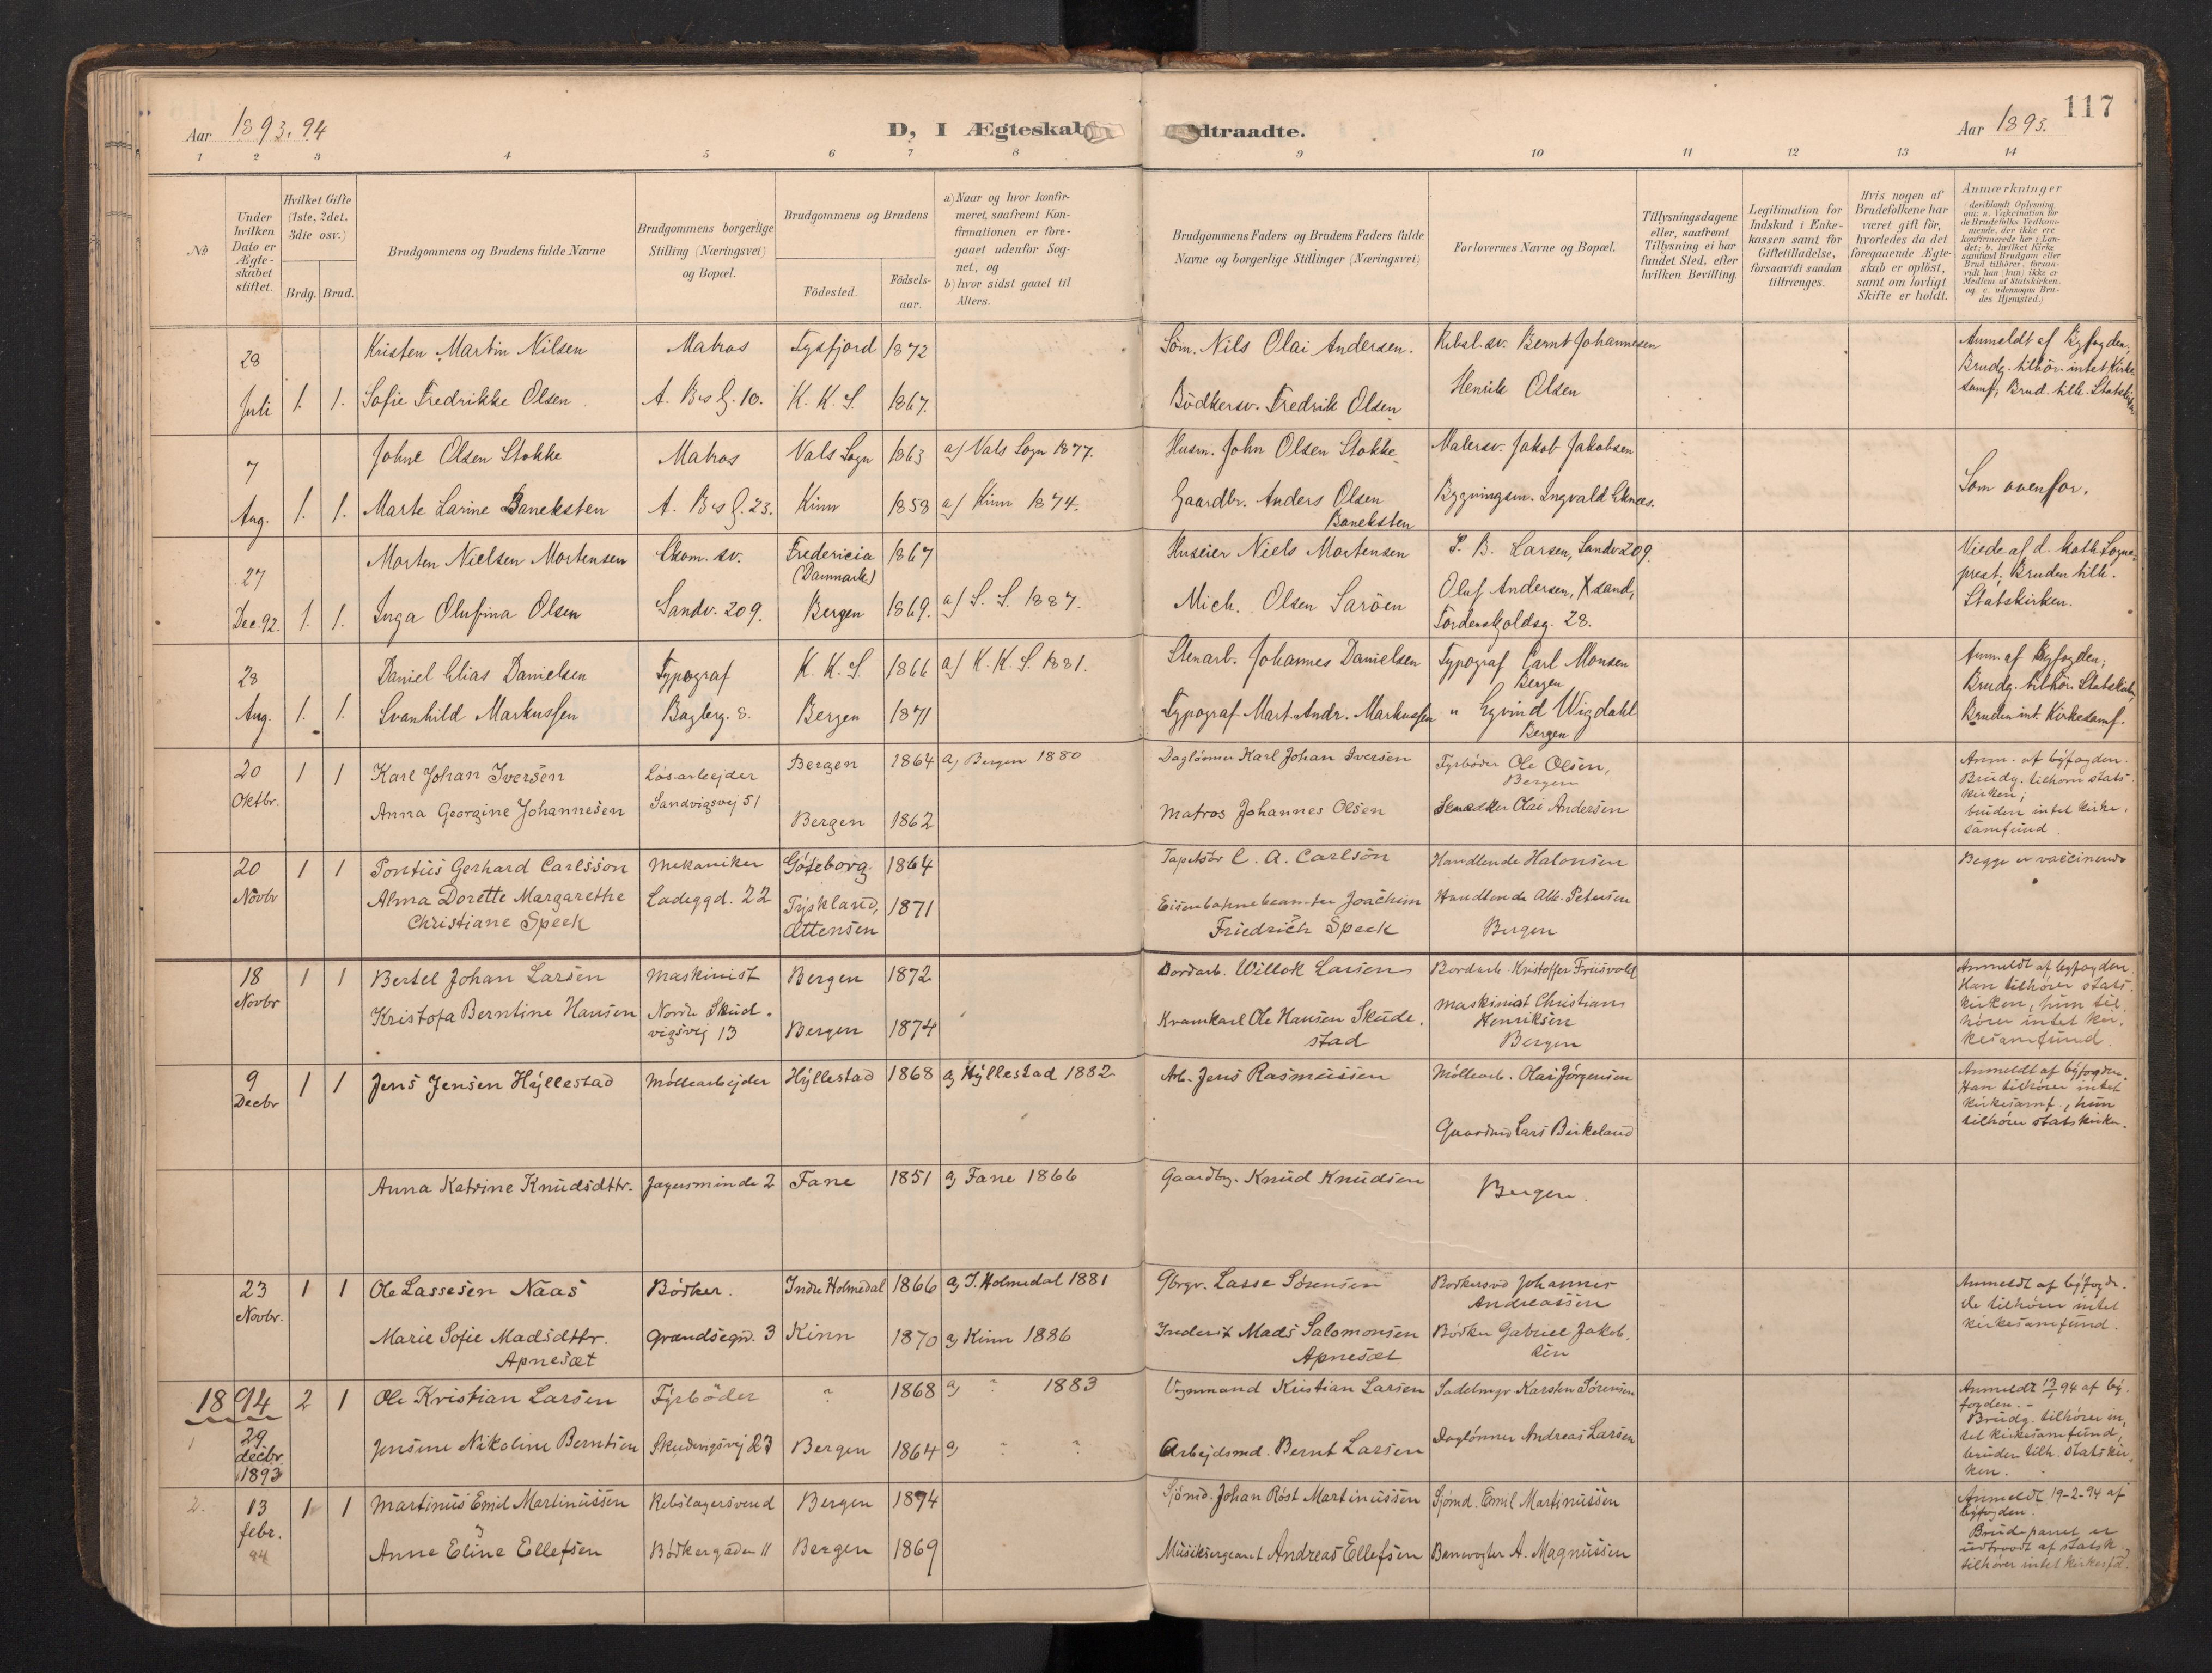 Aar 1893. 94
D, I Ægteskab
dtraadte.
Aar 1893.
117
1 2 3 4 5 6 7 8 9 10 11 12 13 14
No
Under hvilken Dato er Ægteskabet stiftet.
Hvilket Gifte (1ste, 2det, 3die osv.)
Brdg. Brud.
Brudgommens og Brudens fulde Navne
Brudgommens borgerlige Stilling (Næringsvei) og Bopæl.
Brudgommens og Brudens
Födested.
Födsels-aar.
a) Naar og hvor konfirmeret, saafremt Konfirmationen er foregaaet udenfor Sognet, og
b) hvor sidst gaaet til Alters.
Brudgommens Faders og Brudens Faders fulde Navne og borgerlige Stillinger (Næringsvei)
Forlovernes Navne og Bopæl.
Tillysningsdagene eller, saafremt Tillysning ei har fundet Sted, efter hvilken Bevilling.
Legitimation for Indskud i Enkekassen samt for Giftetilladelse, forsaavidt saadan tiltrænges.
Hvis nogen af Brudefolkene har været gift för, hvorledes da det foregaaende Ægteskab er oplöst, samt om lovligt Skifte er holdt.
Anmærkninger (deriblandt Oplysning om: a. Vakcination for de Brudefolks Vedkommende, der ikke ere konfirmerede her i Landet; b. hvilket Kirkesamfund Brudgom eller Brud tilhörer, forsaavidt han (hun) ikke er Medlem af Statskirken, og c. udensogns Brudes Hjemsted.)
28 Kristen Martin Nilsen Matros Tysfjord 1872 Söm. Nils Olai Andersen. Bernt Johannesen Anmeldt af Byfogden.
Juli 1. 1. Sofie Fredrikke Olsen A. Bs G. 10. K. K. S. 1867. Bödkersv. Fredrik Olsen Henrik Olsen Brudg. tilhör. intet Kirkesamf; Brud. tilh. Statskirken
7 Johne Olsen Stokke Matros Vals Sogn 1863 a) Vals Sogn 1877. Husm. John Olsen Stokke Malersv. Jakob Jakobsen
Aug. 1. 1. Marte Larine Baneksten A. Bs G. 23. Kinn 1858 a) Kinn 1874. Gaardbr. Anders Olsen Baneksten Bygningsm. Ingvald Eknæs. Som ovenfor.
27 Morten Nielsen Mortensen Skom. sv. Fredericia (Danmark) 1867 Huseier Niels Mortensen S. B. Larsen, Sandv 209. Viede af d. kath. Sogneprest, Bruden tilh. Statskirken.
Dec. 92. 1. 1. Inga Olufina Olsen Sandv. 209. Bergen 1869. a) S. S. 1887. Mich. Olsen Saröen Oluf Andersen, Xsand, Tordenskjoldsg. 28.
23 Daniel Elias Danielsen Typograf K. K. S 1866 a) K. K. S. 1881. Stenarb. Johannes Danielsen Typograf Carl Monsen Bergen Anm. af Byfogden;
Aug. 1. 1. Svanhild Markussen Bagberg. 8. Bergen 1871 Typograf Mart. Andr. Markussen " Eyvind Wigdahl Bergen Brudg. tilhör. Statskirken, Bruden int. Kirkesamf.
20 Oktbr. 1 1 Karl Johan Iversen Løsarbejder Bergen 1864 a) Bergen 1880 Dagløønner Karl Johan Iversen Fyrbøder Ole Olsen, Bergen Anm. af býfogden. Brudg. tilhører statskirken;
Anna Georgine Johannesen Sandvigsvej 51 Bergen 1862 Matros Johannes Olsen Olai Andersen bruden intet kirkesamfund
20 Novbr 1 1 Pontus Gerhard Carlsson Mekaniker Göteborg. 1864 Tapetsør C. A. Carlson Handlende Halonsen Begge er vaccinerede
Alma Dorette Margarethe Christiane Speck Ladeggd. 22 Tyskland, Ottensen 1871 Eisenbahnebeamter Joachim Friedrich Speck Handlende Alb. Petersen Bergen
18 Novbr 1 1 Bertel Johan Larsen Maskinist Bergen 1872 Willok Larsen Kristoffer Friisvold Anmeldt af byfogden. Han tilhører statskirken, hun tilhører intet kirkesamfund.
Kristofa Berntine Hansen Nordr Skudvigsvej 13 Bergen 1874 Krankarl Ole Hansen Skudestad Maskinist Christian Henriksen Bergen
9 Decbr 1 1 Jens Jensen Hyllestad Møllearbejder Hyllestad 1868 a) Hyllestad 1882 Arb. Jens Rasmussen Møllearb. Olai Jørgensen Anmeldt af býfogden. Han tilhører intet kirkesamf., hun tilhører statskirken.
Gaardmd Lars Birkeland
Anna Katrine Knudsdttr. Jægersminde 2 Fane 1851 a) Fane 1866 Gaardbg. Knud Knudsen Bergen.
23 Novbr. 1 1 Ole Lassesen Naas Bødker. Indre Holmedal 1866 a) I. Holmedal 1881 Gbrgr. Lasse Sørensen Bødkersvd Johannes Andreassen Anmeldt af býfogd. De tilhører intet kirkesamfund.
Marie Sofie Madsdttr. Apnesæt Grændsegd. 3 Kinn 1870 a) Kinn 1886 Inderst Mads Salomonsen Apnesæt Bødker Gabriel Jakobsen
1894
1 29 decbr. 1893 2 1 Ole Kristian Larsen Fyrbøder " 1868 a) " 1883 Vognmand Kristian Larsen Sadelmgr Karsten Sørensen Anmeldt 13/1 94 af býfogden. - Brudg. tilhører intet kirkesamfund, bruden tilh. statskirken.
Jensine Nikoline Berntsen Skudevigsvej 23 Bergen 1864 a) " " Arbejdsmd. Bernt Larsen Daglønner Andreas Larsen
2. 13 febr. 94 1 1 Martinus Emil Martinussen Rebslagersvend Bergen 1874 Sjømd. Johan Röst Martinussen Sjømd. Emil Martinussen Anmeldt 19-2-94 af býfogden.
Anne Eline Ellefsen Bødkergaden 11 Bergen 1869 Musiksergeant Andreas Ellefsen Banevogter A. Magnussen Brudeparret er udtraadt af statsk., tilhører intet kirkesfd.